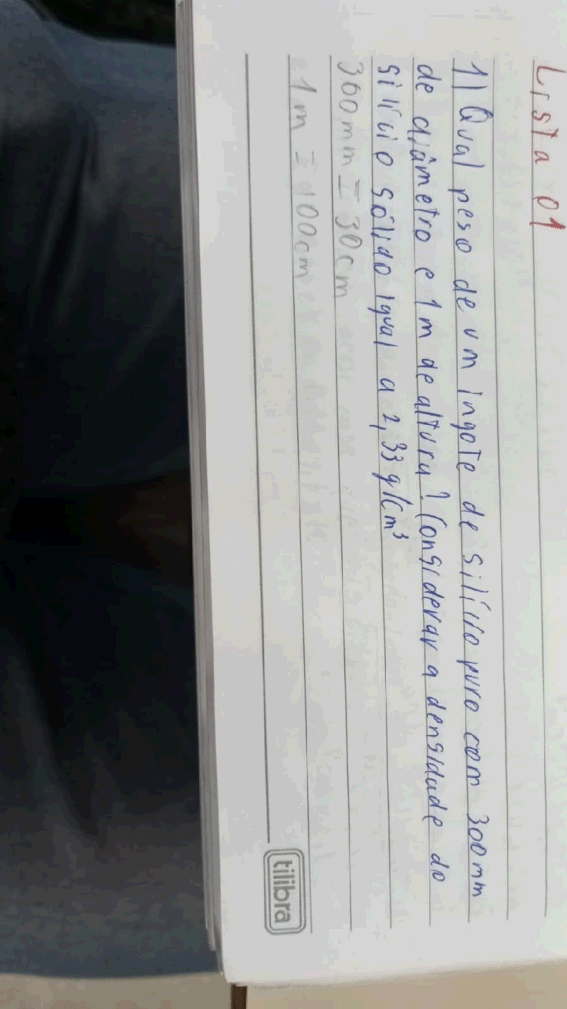 Lista 01
1) Qual peso de um lingote de silício puro com 300mm
de diâmetro e 1m de altura? Considerar a densidade do
silício sólido igual a 2,33 g/cm³
300mm = 30cm
1m = 100cm
tilibra